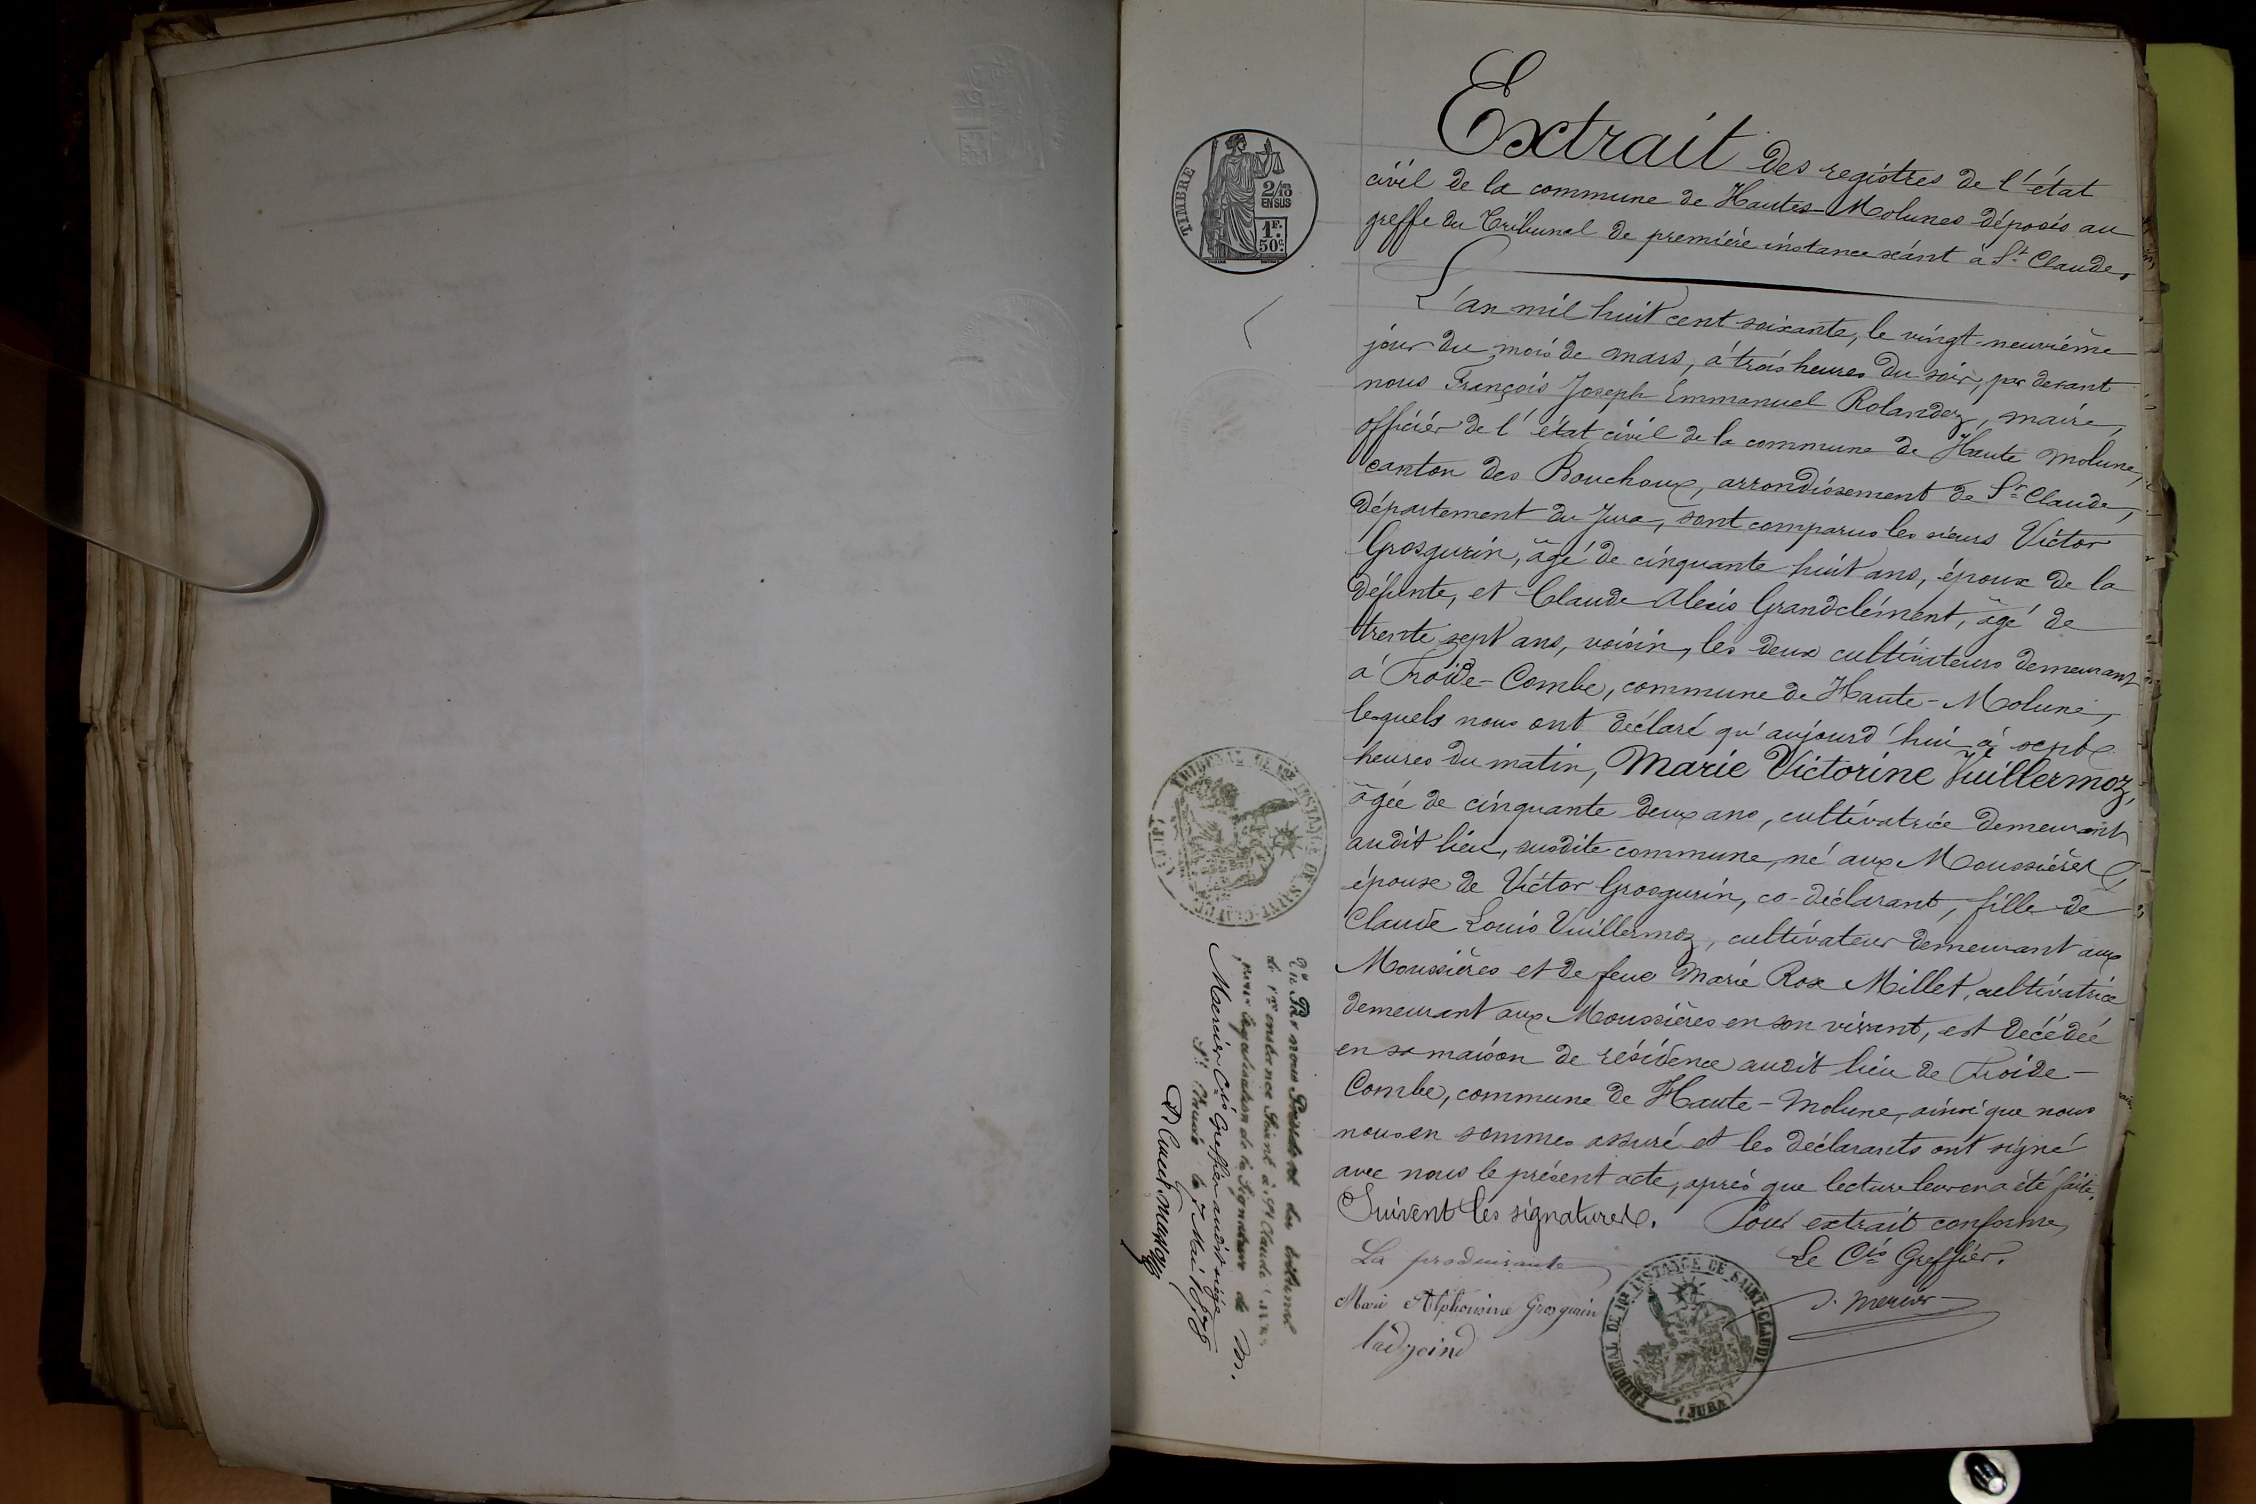 Extrait des registres de l'état
civil de la commune de Hautes-Molunes déposés au
greffe du Tribunal de première instance séant à St Claude.
L'an mil huit cent soixante, le vingt-neuvième
jour du mois de mars, à trois heures du soir, par devant
nous François Joseph Emmanuel Rolandez, maire,
officier de l'état civil de la commune de Haute Molune,
canton des Bouchoux, arrondissement de St Claude,
département du Jura, sont comparus les sieurs Victor
Grosgurin, âgé de cinquante huit ans, époux de la
défunte, et Claude Alexis Grandclément, âgé de
trente sept ans, voisin, les deux cultivateurs demeurant
à Froide-Combe, commune de Haute-Molune,
lesquels nous ont déclaré qu'aujourd'hui à sept
heures du matin, Marie Victorine Vuillermoz,
âgée de cinquante deux ans, cultivatrice demeurant
audit lieu, susdite commune, né aux Moussières,
épouse de Victor Grosgurin, co-déclarant, fille de
Claude Louis Vuillermoz, cultivateur demeurant aux
Moussières et de feue Marie Rose Millet, cultivatrice
demeurant aux Moussières en son vivant, est décédée
en sa maison de résidence audit lieu de Froide-
Combe, commune de Haute-Molune, ainsi que nous
nous en sommes assuré et les déclarants ont signé
avec nous le présent acte, après que lecture leur en a été faite.
Suivent les signatures. Pour extrait conforme,
Le Cis Greffier.
J. Mercier
La produisante
Marie Alphonsine Grosgurin
TIMBRE
2/10
EN SUS
1F.
50c.
TRIBUNAL DE 1RE INSTANCE DE SAINT-CLAUDE
(JURA)
Vu Par nous Président du tribunal
de 1re instance Séant à St Claude (Jura)
pour légalisation de la Signature de M.
Mercier Cis Greffier audit siège
St Claude le 7 Mai
TRIBUNAL DE 1RE INSTANCE DE SAINT-CLAUDE
(JURA)